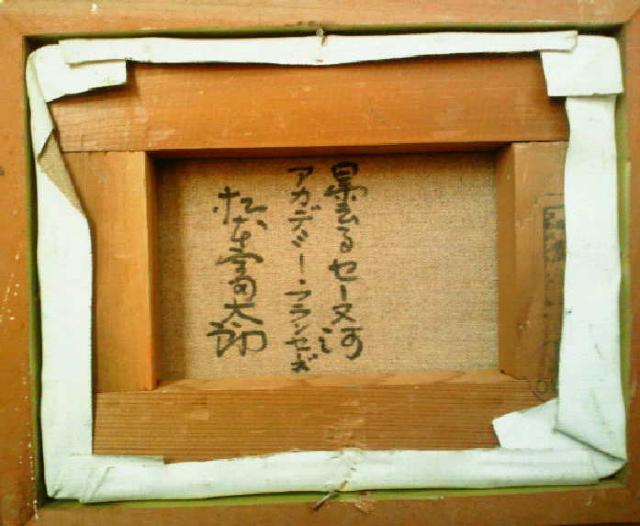 曇るセーヌ河
アカデミー・フランセズ
松本富太郎